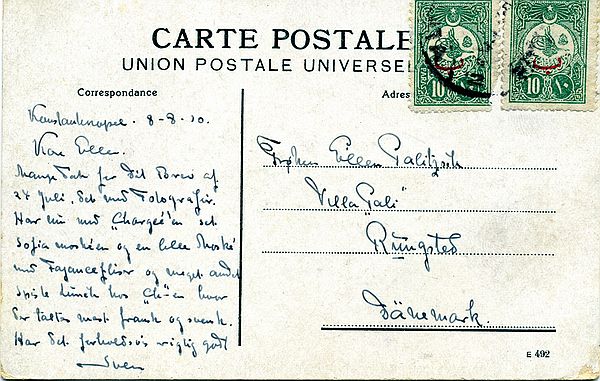 CARTE POSTALE
UNION POSTALE UNIVERSEL
Correspondance
Adres
10
10 ١٠
Konstantinopel. 8-8-10.
Kære Ellen.
Mange Tak for Dit Brev af
24 Juli. Set med Fotografir.
Har nu med "Chargéé'en set
Sofia moskéen og en lille Moské
med Fajancefliser og meget andet
spiste Lunch hos "Ch-en hvor
der taltes mest fransk og svensk.
Har det forholdsvis rigtig godt
Sven
Frøken Ellen Galitzsk
Villa "Gali"
Rungsted
Dänemark
E 492